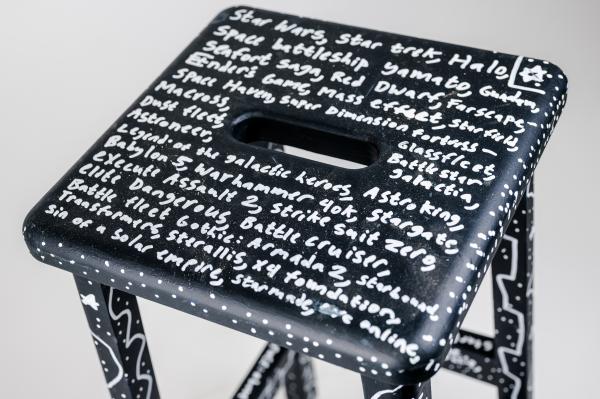 Star Wars, Star trek, Halo,
Space battleship yamato, Gundam,
Seafort Saga, Red Dwarf, Farscape,
Ender's Game, Mass effect, Starfield,
Space Haven, Super Dimension fortress -
Macross, Glassfleet,
Dust fleet, Battlestar
Astroneer, galactica,
Legend of the galactic heroes, Astro king,
Babylon 5, Warhammer 40k, Stargate,
execute Assault 2, Strike Suit Zero,
elite Dangerous, Battle Cruiser,
Battle fleet Gothic: Armada 2, Starbound,
Transformers, Sterallis, x4 foundation,
sin of a solar empire, starmade, online,